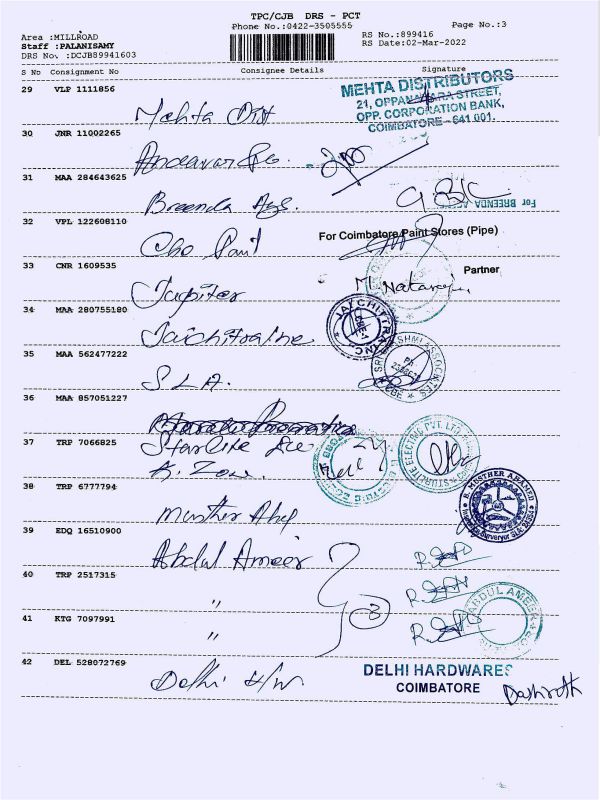 TPC/CJB DRS - PCT
Phone No.:0422-3505555
Page No.:3
Area :MILLROAD
RS No.:899416
Staff :PALANISAMY
RS Date:02-Mar-2022
DRS No. :DCJB89941603
S No Consignment No Consignee Details Signature
29 VLP 1111856
Mehta Dist
MEHTA DISTRIBUTORS
21, OPPANAKARA STREET,
OPP. CORPORATION BANK,
COIMBATORE - 641 001.
30 JNR 11002265
31 MAA 284643625
Breenda Ags.
For BREENDA
32 VPL 122608110
For Coimbatore Paint Stores (Pipe)
33 CNR 1609535
Partner
Jupiter
M. Nataraju
34 MAA 280755180
JAI CHITTRA INC
35 MAA 562477222
SLA.
SRI LAKSHMI ASSOCIATES
CBE
36 MAA 857051227
37 TRP 7066825
Starlite Ele
STURLITE ELECTRIC PVT. LTD.
38 TRP 6777794
Musther Ahd
B. MUSTHER AHAMED
39 EDQ 16510900
Abdul Ameer
40 TRP 2517315
"
3
41 KTG 7097991
"
ABDUL AMEER
42 DEL 528072769
Delhi H/W
DELHI HARDWARES
COIMBATORE